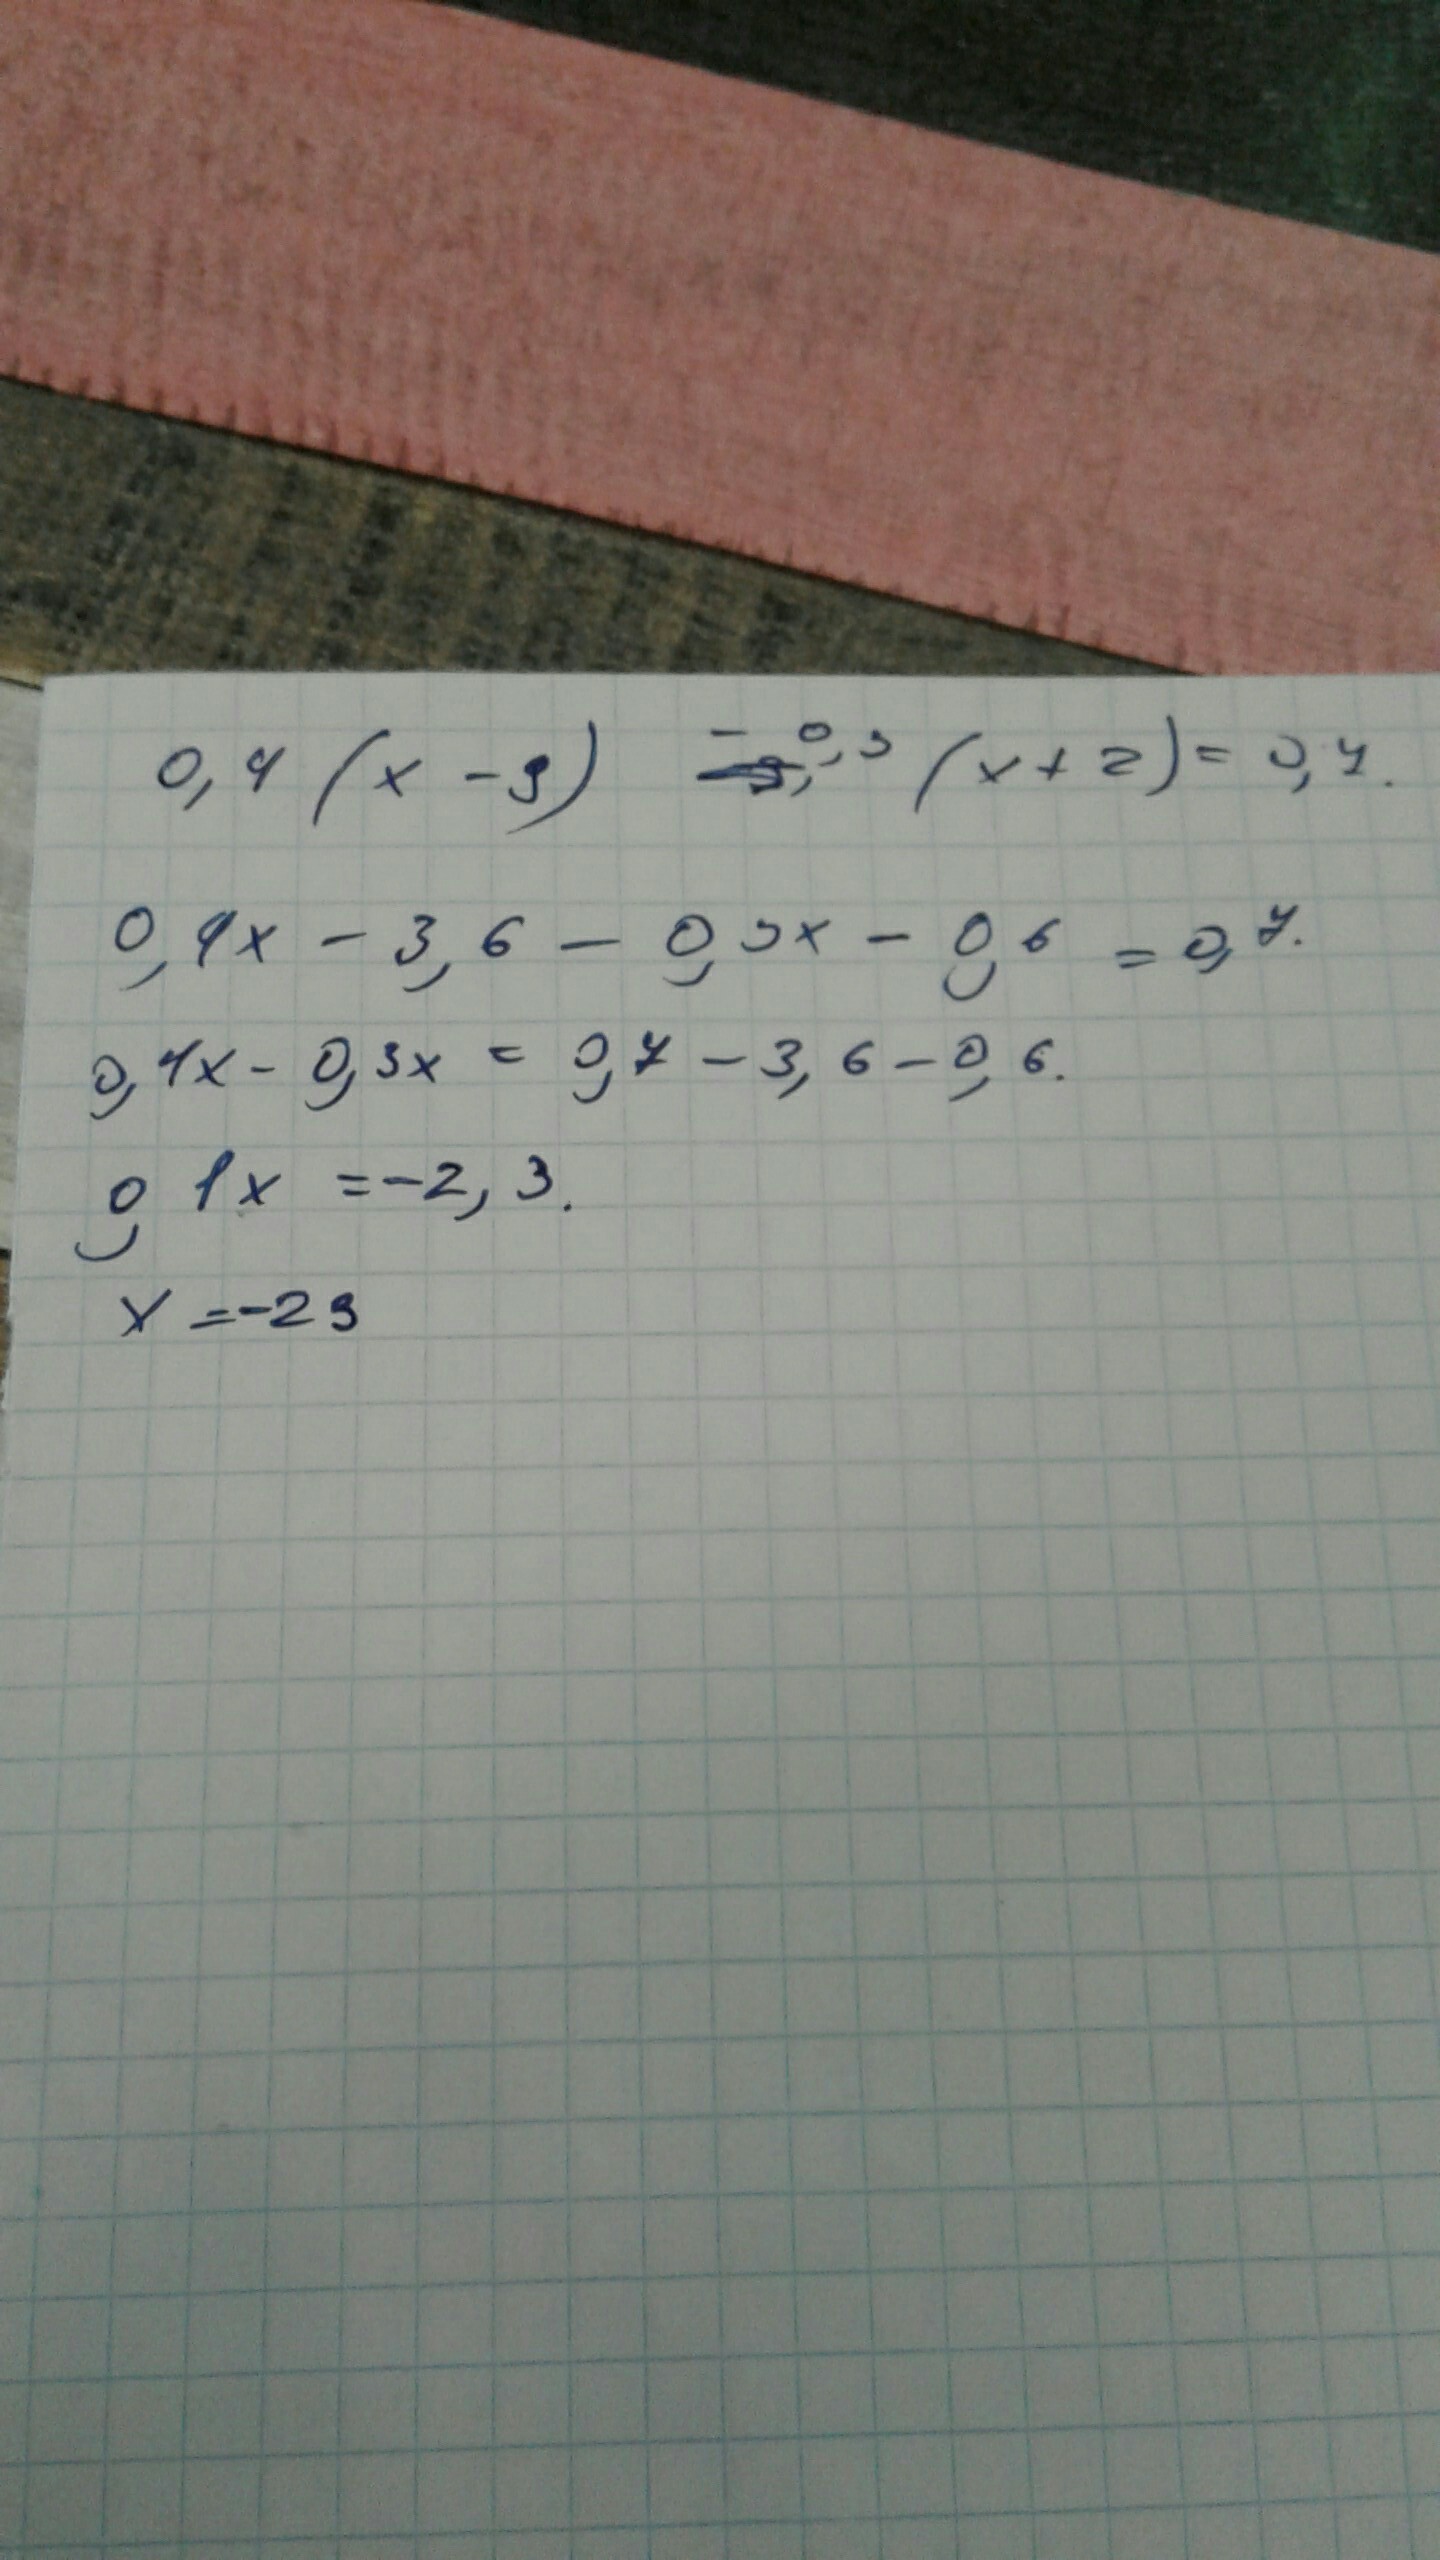 0,4 (x - 9) - 0,3 (x + 2) = 0,7.
0,4x - 3,6 - 0,3x - 0,6 = 0,7.
0,4x - 0,3x = 0,7 - 3,6 - 0,6.
0,1x = -2,3.
x = -23